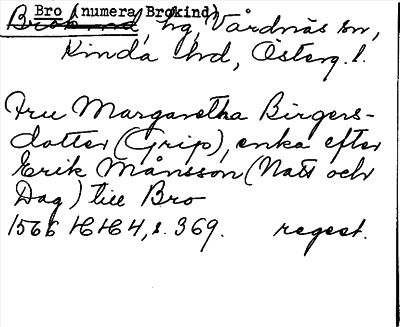 Bro (numera Brokind)
Brokind, hg, Vårdnäs sn,
Kinda hd, Österg. l.
Fru Margaretha Birgers-
dotter (Grip), enka efter
Erik Månsson (Natt och
Dag) till Bro
1566 HH 4, s. 369. regest.